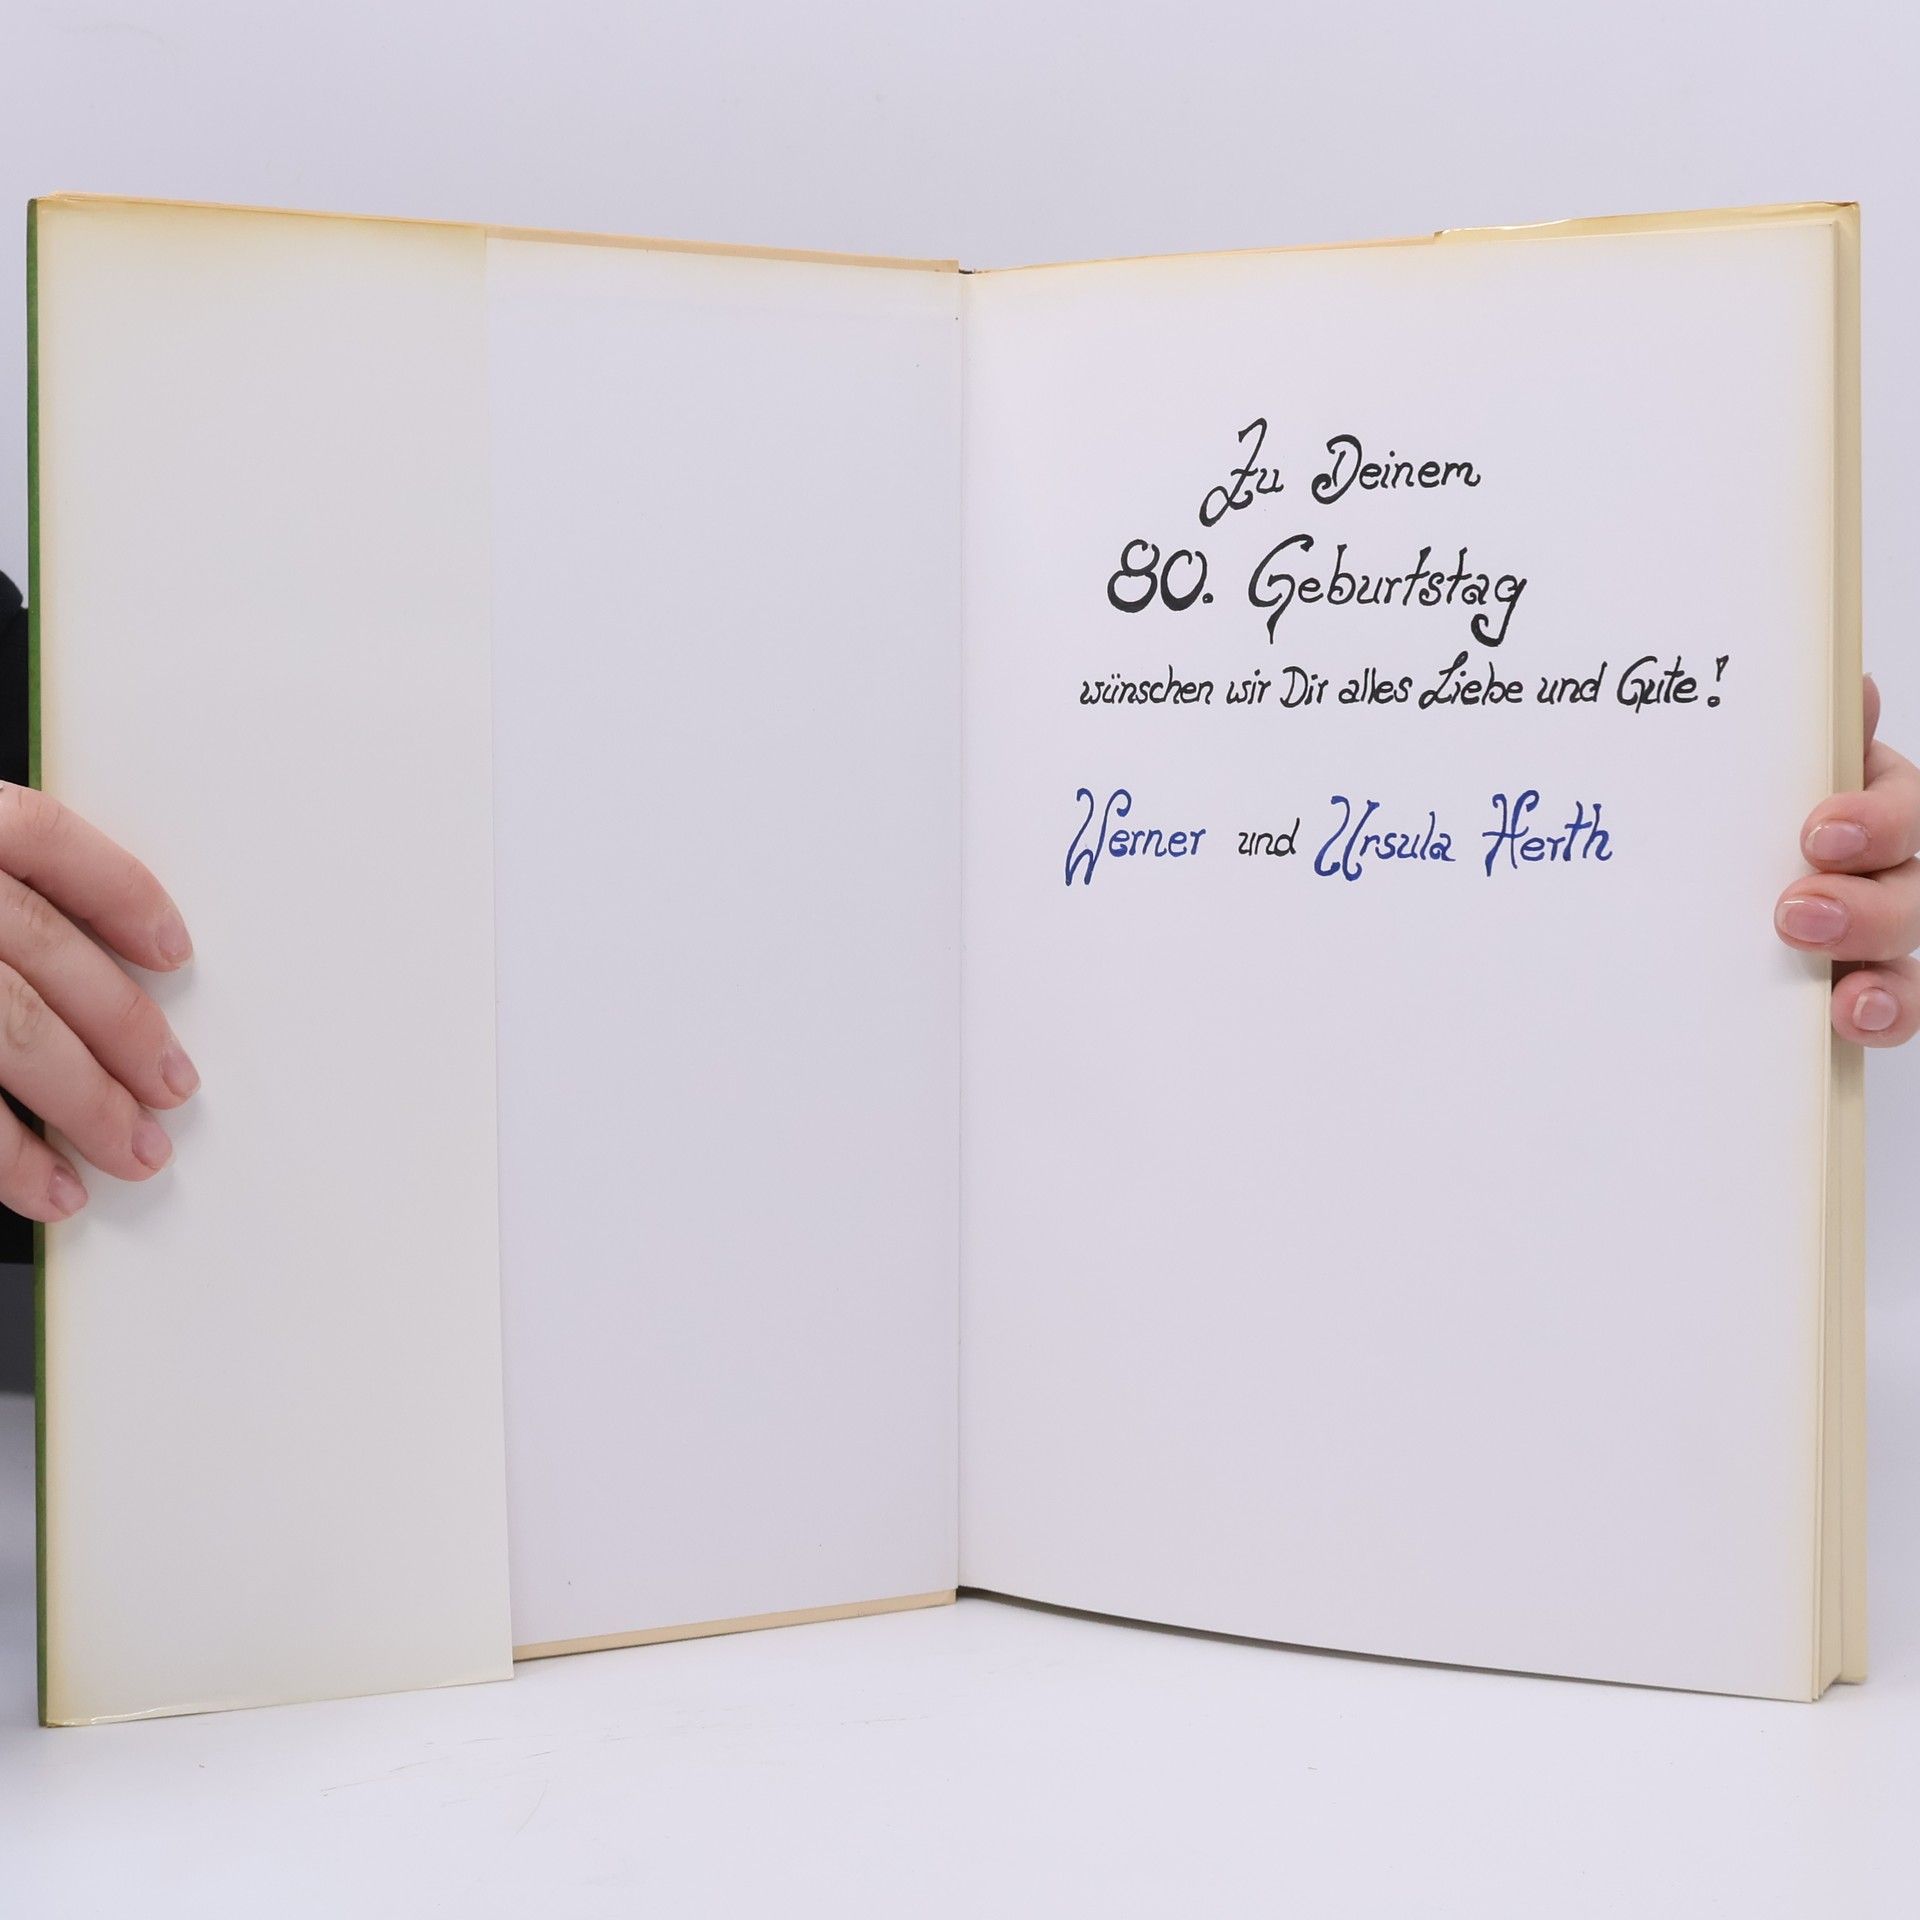 Zu Deinem
80. Geburtstag
wünschen wir Dir alles Liebe und Gute!
Werner und Ursula Herth